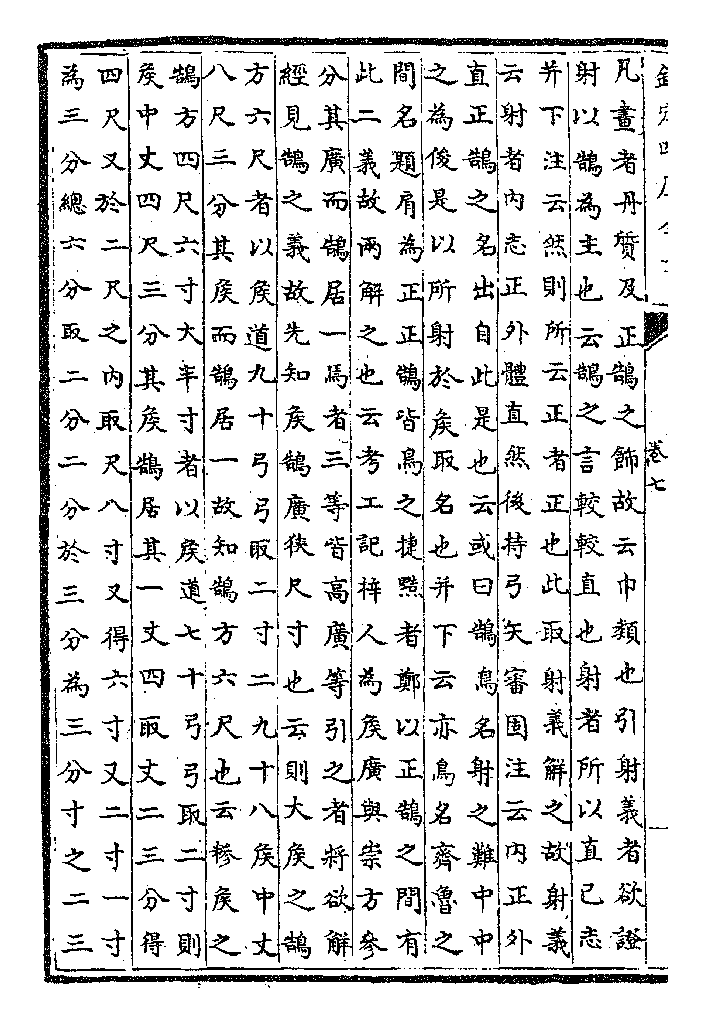 欽定四庫全書
卷七
凡畫者丹質及正鵠之飾故云巾類也引射義者欲證
射以鵠為主也云鵠之言較較直也射者所以直己志
并下注云然則所云正者正也此取射義解之故射義
云射者内志正外體直然後持弓矢審固注云内正外
直正鵠之名出自此是也云或曰鵠鳥名射之難中中
之為俊是以所射於矦取名也并下云亦鳥名齊魯之
間名題肩為正正鵠皆鳥之捷黠者鄭以正鵠之間有
此二義故兩解之也云考工記梓人為矦廣與崇方參
分其廣而鵠居一焉者三等皆高廣等引之者將欲解
經見鵠之義故先知矦鵠廣狹尺寸也云則大矦之鵠
方六尺者以矦道九十弓弓取二寸二九十八矦中丈
八尺三分其矦而鵠居一故知鵠方六尺也云糝矦之
鵠方四尺六寸大半寸者以矦道七十弓弓取二寸則
矦中丈四尺三分其矦鵠居其一丈四取丈二三分得
四尺又於二尺之内取尺八寸又得六寸又二寸一寸
為三分總六分取二分二分於三分為三分寸之二三